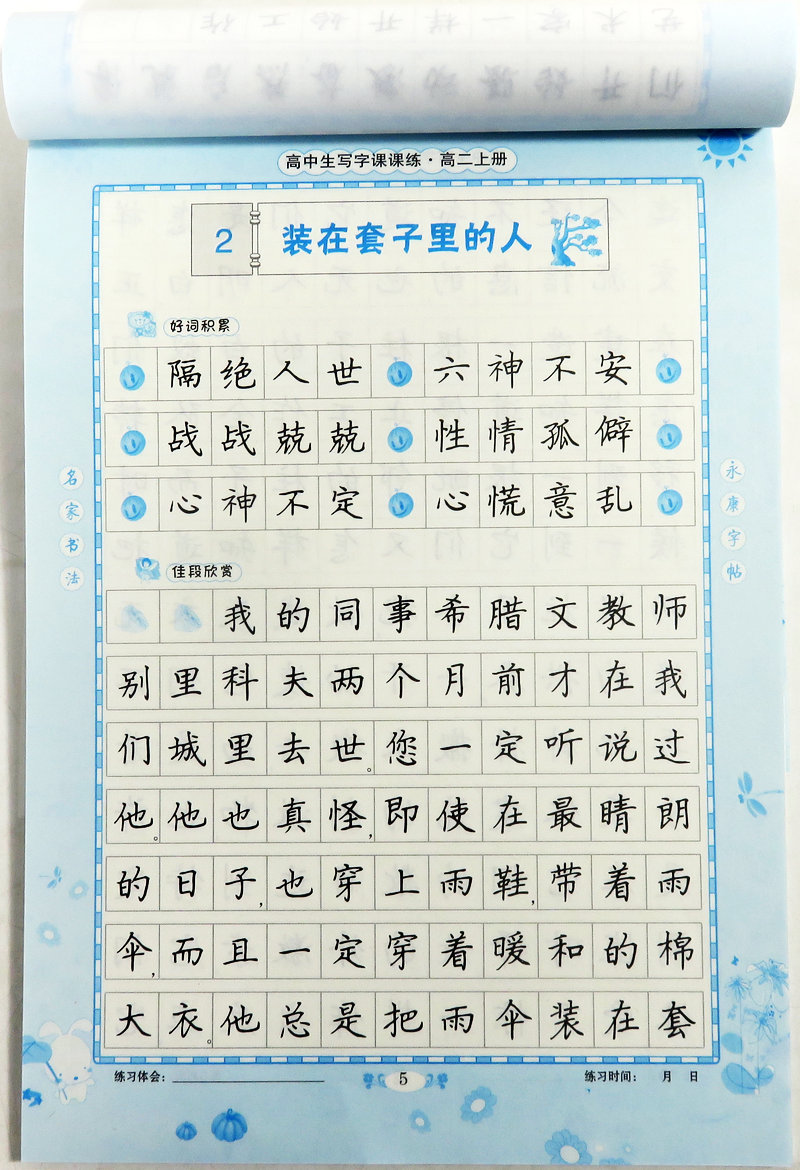 高中生写字课课练·高二上册
2 装在套子里的人
好词积累
隔绝人世 六神不安
战战兢兢 性情孤僻
心神不定 心慌意乱
名家书法
永康字帖
佳段欣赏
我的同事希腊文教师
别里科夫两个月前才在我
们城里去世。您一定听说过
他。他也真怪,即使在最晴朗
的日子,也穿上雨鞋,带着雨
伞,而且一定穿着暖和的棉
大衣。他总是把雨伞装在套
练习体会:
5
练习时间: 月 日